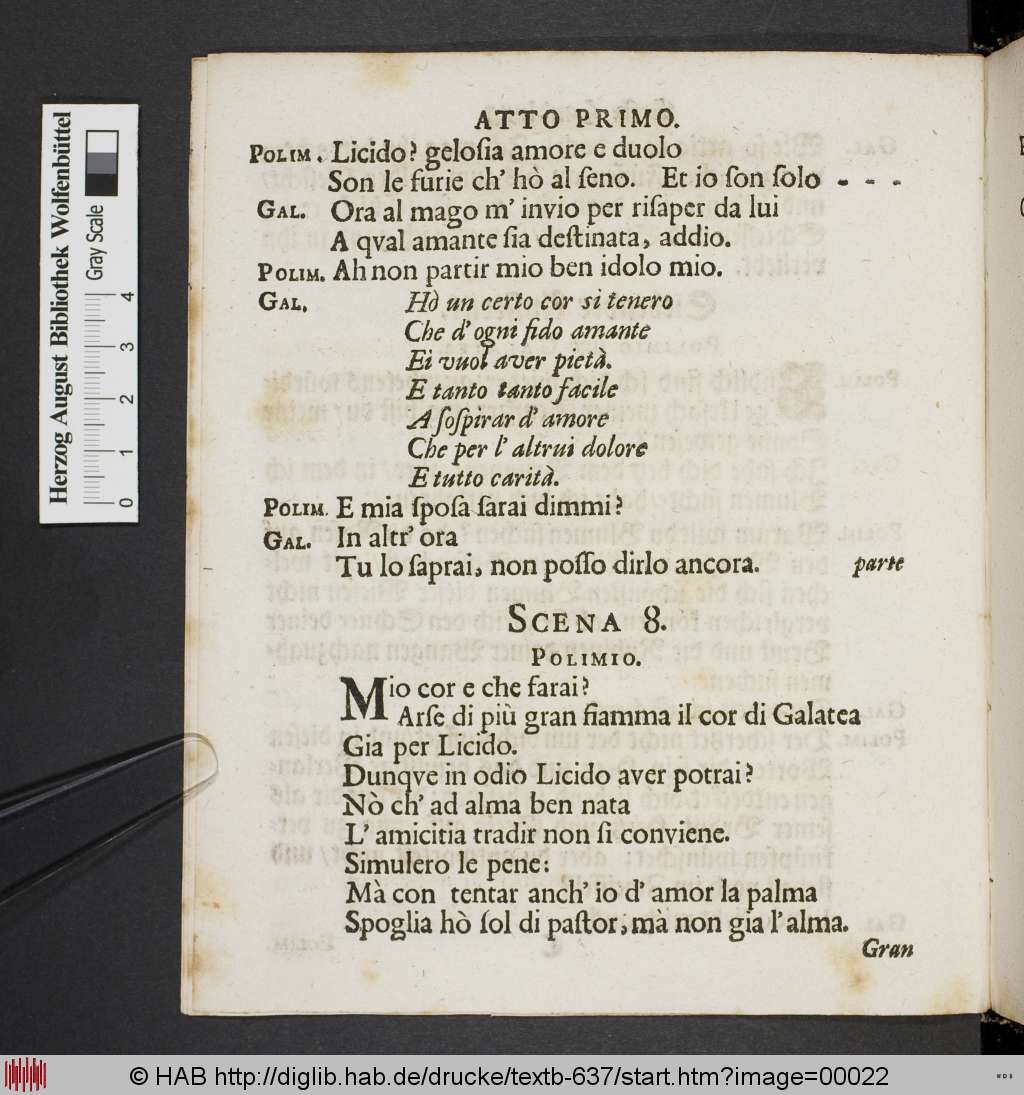 ATTO PRIMO.
POLIM. Licido? geloſia amore e duolo
Son le furie ch' hò al ſeno. Et io ſon ſolo - - -
GAL. Ora al mago m' invio per riſaper da lui
A qval amante ſia deſtinata, addio.
POLIM. Ah non partir mio ben idolo mio.
GAL. Hò un certo cor si tenero
Che d' ogni fido amante
Ei vuol aver pietà.
E tanto tanto facile
A ſoſpirar d' amore
Che per l' altrui dolore
E tutto carità.
POLIM. E mia ſpoſa ſarai dimmi?
GAL. In altr' ora
Tu lo ſaprai, non poſſo dirlo ancora. parte
SCENA 8.
POLIMIO.
Mio cor e che farai?
Arſe di più gran fiamma il cor di Galatea
Gia per Licido.
Dunqve in odio Licido aver potrai?
Nò ch' ad alma ben nata
L' amicitia tradir non ſi conviene.
Simulero le pene:
Mà con tentar anch' io d' amor la palma
Spoglia hò ſol di paſtor, mà non gia l' alma.
Gran
Herzog August Bibliothek Wolfenbüttel
Gray Scale
0 1 2 3 4
© HAB http://diglib.hab.de/drucke/textb-637/start.htm?image=00022